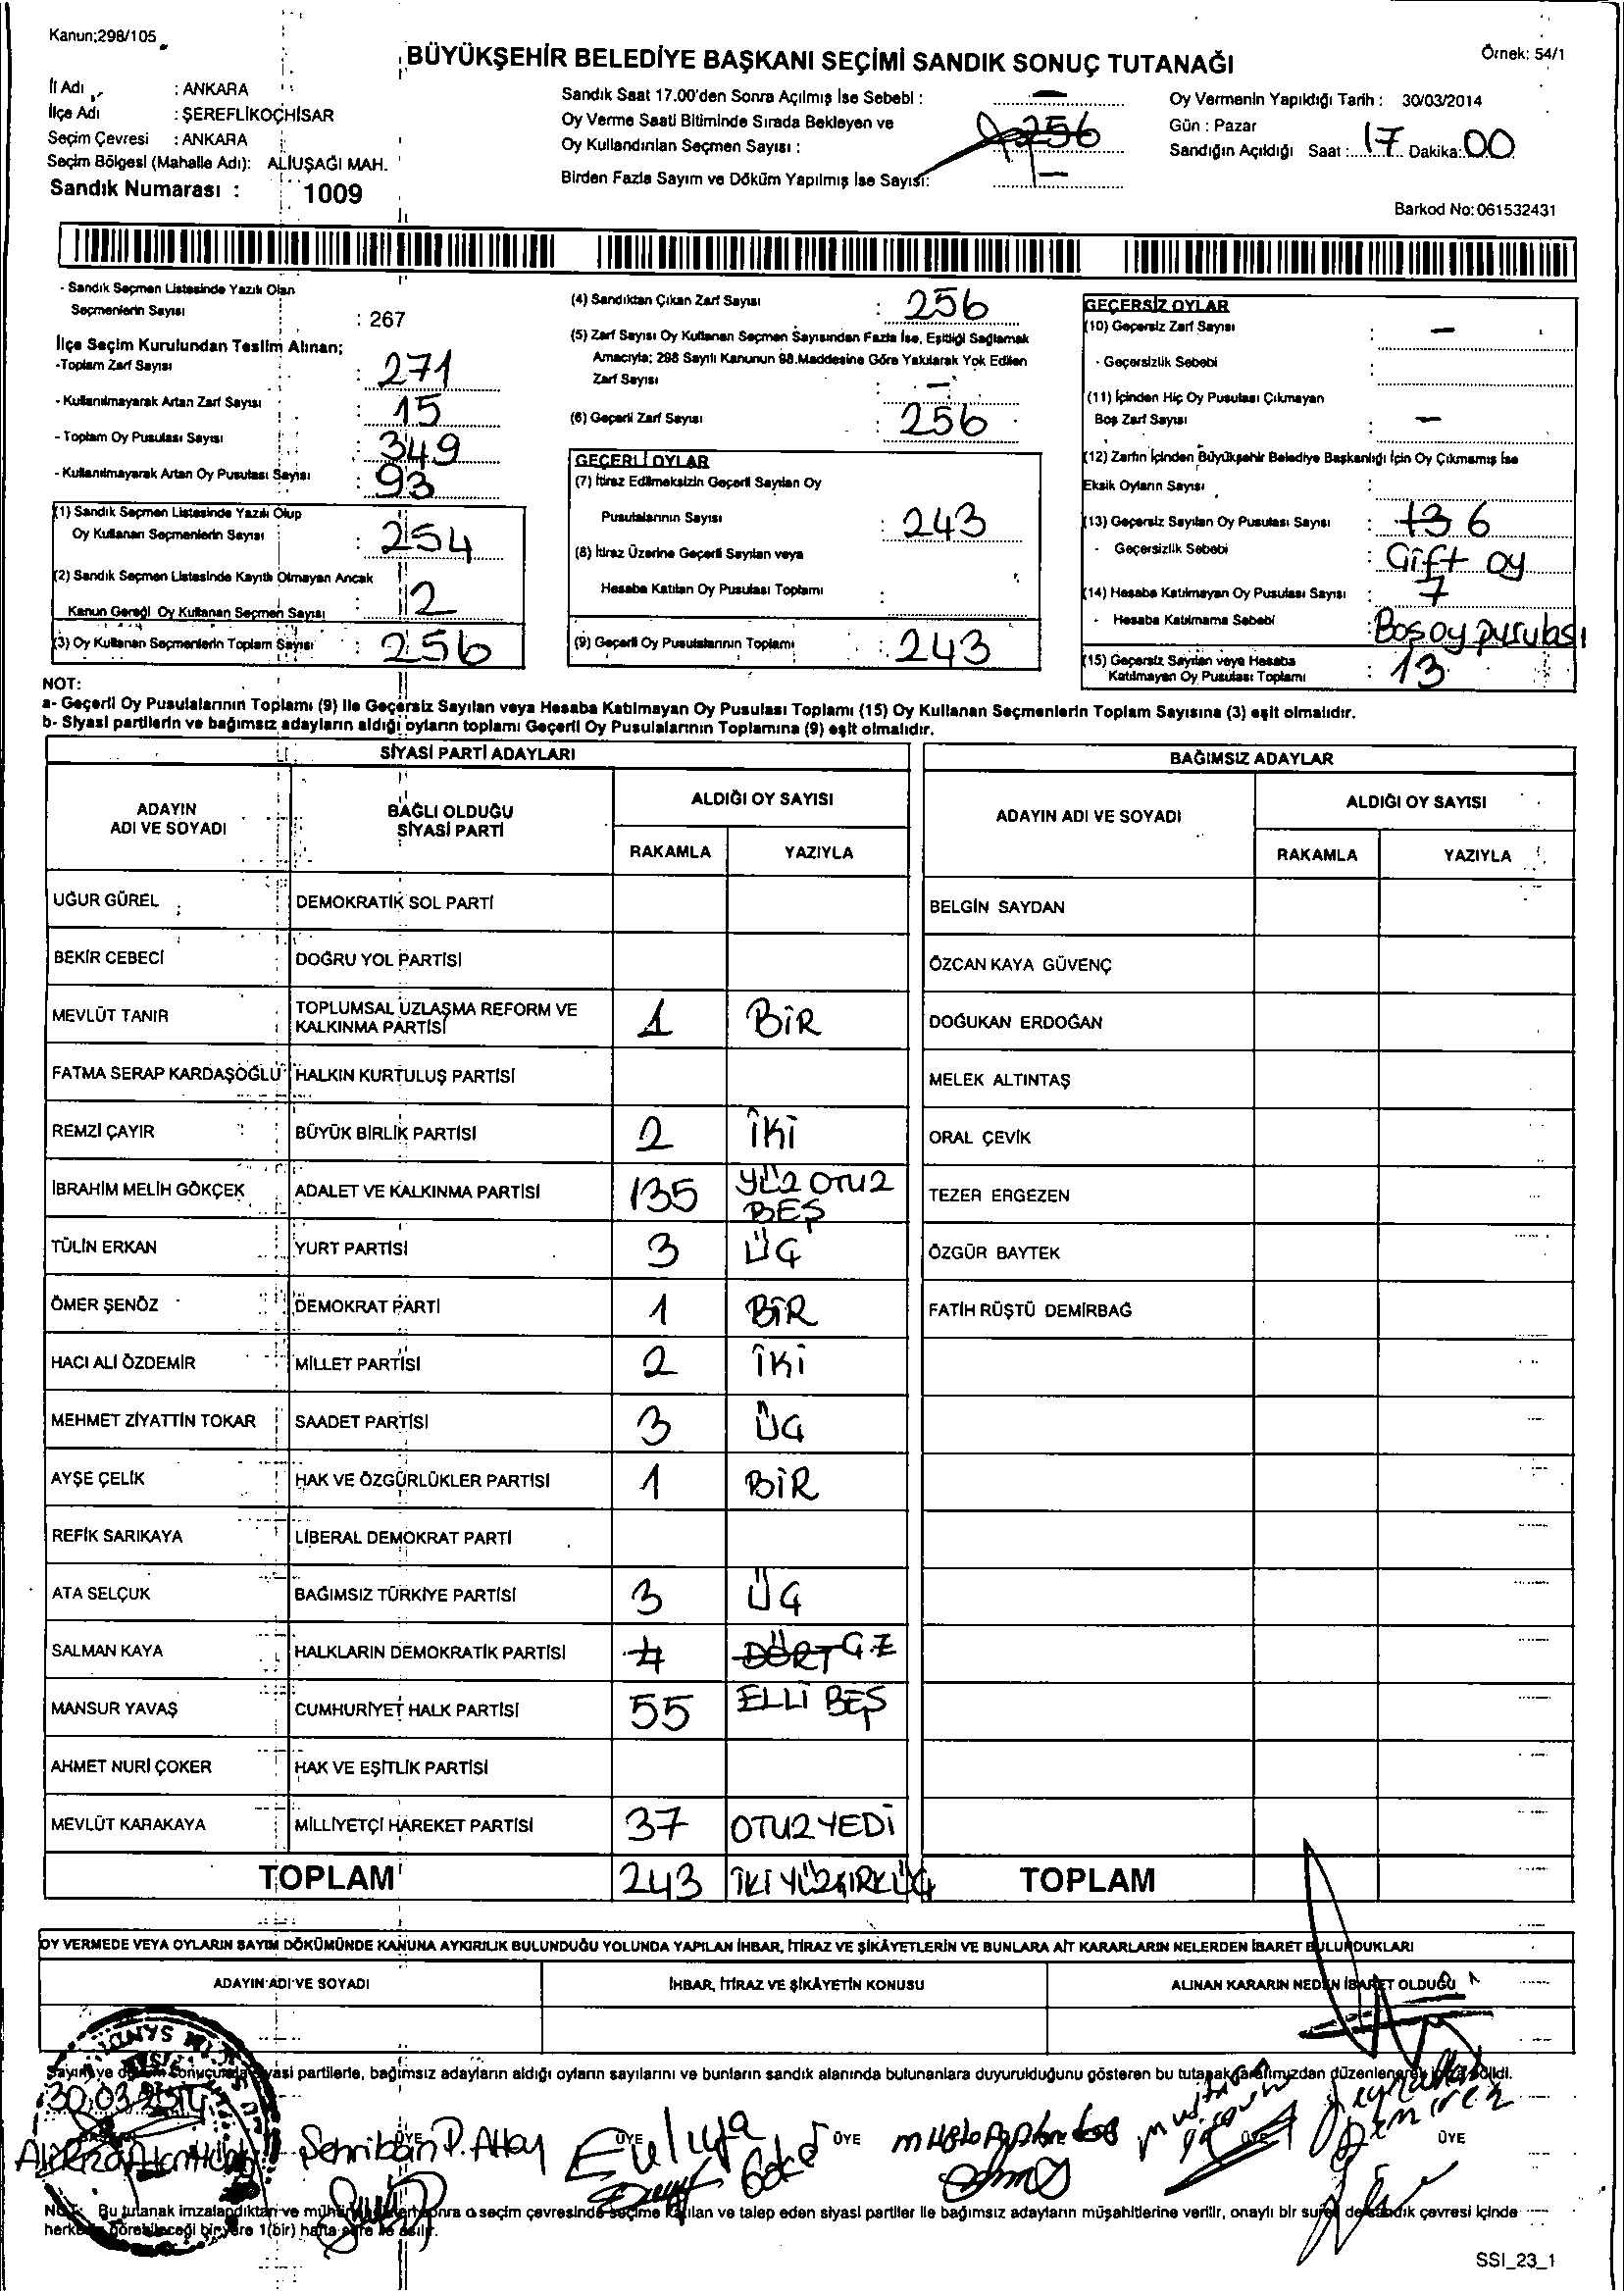 Kanun;298/105
Örnek: 54/1
BÜYÜKŞEHİR BELEDİYE BAŞKANI SEÇİMİ SANDIK SONUÇ TUTANAĞI
İl Adı : ANKARA
İlçe Adı : ŞEREFLİKOÇHİSAR
Seçim Çevresi : ANKARA
Seçim Bölgesi (Mahalle Adı): ALİUŞAĞI MAH.
Sandık Numarası : 1009
Sandık Saat 17.00'den Sonra Açılmış İse Sebebi : —
Oy Verme Saati Bitiminde Sırada Bekleyen ve
Oy Kullandırılan Seçmen Sayısı : 256
Birden Fazla Sayım ve Döküm Yapılmış İse Sayısı: —
Oy Vermenin Yapıldığı Tarih : 30/03/2014
Gün : Pazar
Sandığın Açıldığı Saat : 17 Dakika: 00
Barkod No: 061532431
- Sandık Seçmen Listesinde Yazılı Olan
Seçmenlerin Sayısı : 267
İlçe Seçim Kurulundan Teslim Alınan;
-Toplam Zarf Sayısı : 271
- Kullanılmayarak Artan Zarf Sayısı : 15
- Toplam Oy Pusulası Sayısı : 349
- Kullanılmayarak Artan Oy Pusulası Sayısı : 93
(1) Sandık Seçmen Listesinde Yazılı Olup
Oy Kullanan Seçmenlerin Sayısı : 254
(2) Sandık Seçmen Listesinde Kayıtlı Olmayan Ancak
Kanun Gereği Oy Kullanan Seçmen Sayısı : 2
(3) Oy Kullanan Seçmenlerin Toplam Sayısı : 256
(4) Sandıktan Çıkan Zarf Sayısı : 256
(5) Zarf Sayısı Oy Kullanan Seçmen Sayısından Fazla İse, Eşitliği Sağlamak
Amacıyla; 298 Sayılı Kanunun 98.Maddesine Göre Yakılarak Yok Edilen
Zarf Sayısı : —
(6) Geçerli Zarf Sayısı : 256
GEÇERLİ OYLAR
(7) İtiraz Edilmeksizin Geçerli Sayılan Oy
Pusulalarının Sayısı : 243
(8) İtiraz Üzerine Geçerli Sayılan veya
Hesaba Katılan Oy Pusulası Toplamı :
(9) Geçerli Oy Pusulalarının Toplamı : 243
GEÇERSİZ OYLAR
(10) Geçersiz Zarf Sayısı : —
- Geçersizlik Sebebi :
(11) İçinden Hiç Oy Pusulası Çıkmayan
Boş Zarf Sayısı : —
(12) Zarfın İçinden Büyükşehir Belediye Başkanlığı İçin Oy Çıkmamış İse
Eksik Oyların Sayısı :
(13) Geçersiz Sayılan Oy Pusulası Sayısı : 13 6
- Geçersizlik Sebebi : Çift oy
(14) Hesaba Katılmayan Oy Pusulası Sayısı : 7
- Hesaba Katılmama Sebebi : Boş oy purulası
(15) Geçersiz Sayılan veya Hesaba
Katılmayan Oy Pusulası Toplamı : 13
NOT:
a- Geçerli Oy Pusulalarının Toplamı (9) ile Geçersiz Sayılan veya Hesaba Katılmayan Oy Pusulası Toplamı (15) Oy Kullanan Seçmenlerin Toplam Sayısına (3) eşit olmalıdır.
b- Siyasi partilerin ve bağımsız adayların aldığı oyların toplamı Geçerli Oy Pusulalarının Toplamına (9) eşit olmalıdır.
SİYASİ PARTİ ADAYLARI
ADAYIN ADI VE SOYADI
BAĞLI OLDUĞU SİYASİ PARTİ
ALDIĞI OY SAYISI
RAKAMLA YAZIYLA
UĞUR GÜREL DEMOKRATİK SOL PARTİ
BEKİR CEBECİ DOĞRU YOL PARTİSİ
MEVLÜT TANIR TOPLUMSAL UZLAŞMA REFORM VE KALKINMA PARTİSİ 1 BİR
FATMA SERAP KARDAŞOĞLU HALKIN KURTULUŞ PARTİSİ
REMZİ ÇAYIR BÜYÜK BİRLİK PARTİSİ 2 İKİ
İBRAHİM MELİH GÖKÇEK ADALET VE KALKINMA PARTİSİ 135 YÜZ OTUZ BEŞ
TÜLİN ERKAN YURT PARTİSİ 3 ÜÇ
ÖMER ŞENÖZ DEMOKRAT PARTİ 1 BİR
HACI ALİ ÖZDEMİR MİLLET PARTİSİ 2 İKİ
MEHMET ZİYATTİN TOKAR SAADET PARTİSİ 3 ÜÇ
AYŞE ÇELİK HAK VE ÖZGÜRLÜKLER PARTİSİ 1 BİR
REFİK SARIKAYA LİBERAL DEMOKRAT PARTİ
ATA SELÇUK BAĞIMSIZ TÜRKİYE PARTİSİ 3 ÜÇ
SALMAN KAYA HALKLARIN DEMOKRATİK PARTİSİ 4 DÖRT
MANSUR YAVAŞ CUMHURİYET HALK PARTİSİ 55 ELLİ BEŞ
AHMET NURİ ÇOKER HAK VE EŞİTLİK PARTİSİ
MEVLÜT KARAKAYA MİLLİYETÇİ HAREKET PARTİSİ 37 OTUZ YEDİ
TOPLAM 243 İKİ YÜZ KIRK ÜÇ
BAĞIMSIZ ADAYLAR
ADAYIN ADI VE SOYADI
ALDIĞI OY SAYISI
RAKAMLA YAZIYLA
BELGİN SAYDAN
ÖZCAN KAYA GÜVENÇ
DOĞUKAN ERDOĞAN
MELEK ALTINTAŞ
ORAL ÇEVİK
TEZER ERGEZEN
ÖZGÜR BAYTEK
FATİH RÜŞTÜ DEMİRBAĞ
TOPLAM
OY VERMEDE VEYA OYLARIN SAYIM DÖKÜMÜNDE KANUNA AYKIRILIK BULUNDUĞU YOLUNDA YAPILAN İHBAR, İTİRAZ VE ŞİKÂYETLERİN VE BUNLARA AİT KARARLARIN NELERDEN İBARET BULUNDUKLARI
ADAYIN ADI VE SOYADI
İHBAR, İTİRAZ VE ŞİKÂYETİN KONUSU
ALINAN KARARIN NEDEN İBARET OLDUĞU
Sayım ve döküm sonucunda siyasi partilerle, bağımsız adayların aldığı oyların sayılarını ve bunların sandık alanında bulunanlara duyurulduğunu gösteren bu tutanak tarafımızdan düzenlenerek
30.03.2014
Şehriban P. Altay
ÜYE ÜYE ÜYE ÜYE ÜYE
NOT: Bu tutanak imzalandıktan ve mühürlendikten sonra o seçim çevresinde seçime katılan ve talep eden siyasi partiler ile bağımsız adayların müşahitlerine verilir, onaylı bir sureti de sandık çevresi içinde
herkesin görebileceği bir yere 1(bir) hafta süre ile asılır.
SSI_23_1